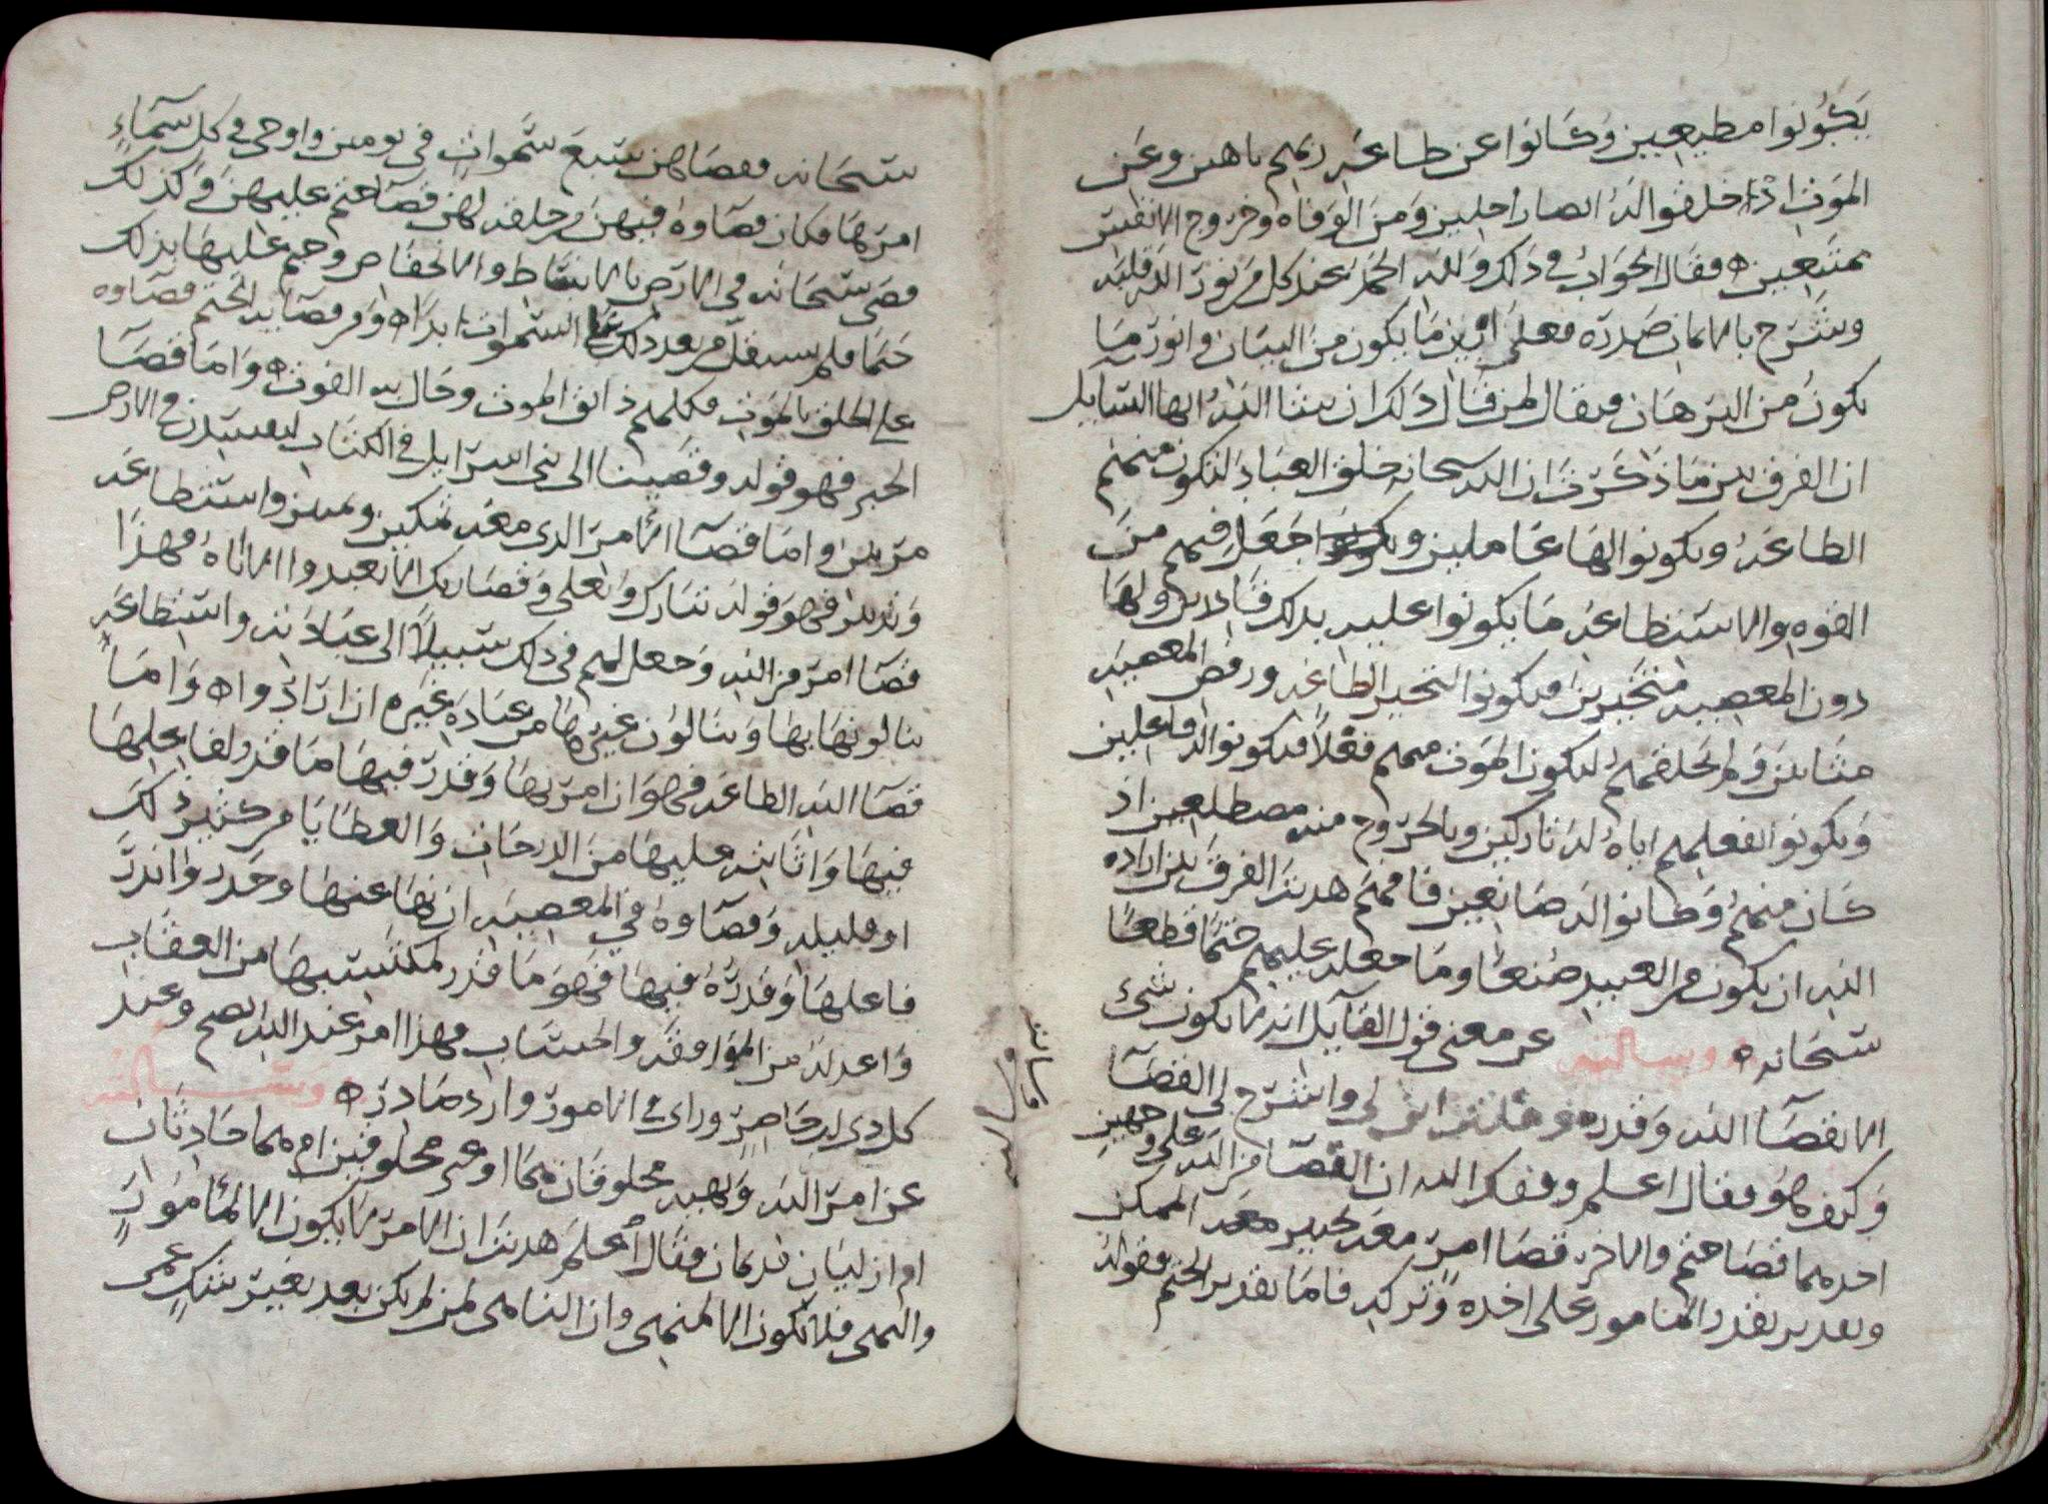 يكونوا مطيعين وكانوا عن طاعه ربهم ناهين وعن
الموت اذا خلقوا الله الصار اجلين ومن الوفاه وخروج الانفس
ممتنعين ه فقال الجواب في ذلك ولله الحمد عند كل من نور الله قلبه
وشرح بالايمان صدره فعلى ابين ما يكون من البيان وانور ما
يكون من البرهان فيقال لمن قال ذلك ان شا الله ايها السايل
ان الفرق بين ما ذكرت ان الله سبحانه خلق العباد لتكون منهم
الطاعه ويكونوا لها عاملين وجعل فيهم من
القوه والاستطاعه ما يكونوا عليه بذلك قادرين ولها
دون المعصيه متخيرين فيكونوا لتخير الطاعه ورفض المعصيه
مثابين ولم يخلقهم ليكون الموت منهم فعلا فيكونوا له فاعلين
ويكونوا لفعلهم اياه له تاركين وبالخروج منه مضطلعين اذ
كان منهم وكانوا له صانعين فافهم هديت الفرق بين اراده
الله ان يكون من العبيد صنعا وما جعله عليهم حتما قطعا
سبحانه ه وسالته عن معنى قول القايل انه لا يكون شيء
الا بقضا الله وقدره وقلت اشرح لي القضا
وكيف هو فقال اعلم وفقك الله ان القضا من الله على وجهين
احدهما قضا حتم والاخر قضا امر معه تخيير معه الممكن
وتقدير يقدر المامور على اخذه وتركه فاما تقدير الحتم فقوله
سبحانه فقضاهن سبع سموات في يومين واوحى في كل سماء
امرها فكان قضاوه فيهن من خلقه لهن قضا حتم عليهن وكذلك
قضى سبحانه في الارض بالانبساط والانخفاض وحتم عليها بذلك
حتما فلم تستقل من بعد ذلك السموات ابدا ه ومن قضايه الحتم قضاوه
على الخلق بالموت فكلهم ذائق الموت وحال به الفوت ه واما قضا
الخبر فهو قوله وقضينا الى بني اسرايل في الكتاب لتفسدن في الارض
مرتين واما قضا الامر الذي معه تمكين واستطاعه
فهو قوله تبارك وتعلى وقضا ربك الا تعبدوا الا اياه فهذا
قضا امر من الله وجعل لهم في ذلك سبيلا الى عبادته واستطاعه
ينالونها بها وينالون غيرها من عباده غيره ان ارادوا ه واما
قضا الله الطاعه فهو ان امر بها وقدر فيها ما قدر لفاعلها
فيها واثابته عليها من الدرجات والعطايا من كثير ذلك
او قليله وقضاوه في المعصيه ان نها عنها وحذر وانذر
فاعلها وقدره فيها فهو ما قدر لمكتسبها من العقاب
واعد له من الموافقه والحساب فهذا امر عند الله اصح وعند
كل ذي لب حاضر وراي في الامور وارد صادر ه وسالته
عن امر الله ونهيه مخلوقان هما او غير مخلوقين ام هما حادثان
ام ازليان قديمان فقال اعلم هديت ان الامر لا يكون الا لمامور
والنهي فلا يكون الا لمنهي وان الناهي لمن لم يكن بعد بغير شك عمي